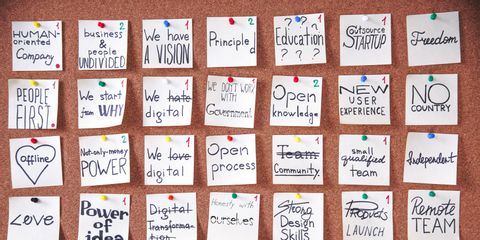 HUMAN-
oriented
Company
1
business
&
people
UNDIVIDED
2
We have
A VISION
Principled
2
? ? ?
Education
? ? ?
Outsource
STARTUP
1
Freedom
1
PEOPLE
FIRST
1
We start
from WHY
2
We hate
digital
We DON'T WORK
WITH
Government
1
Open
knowledge
2
NEW
USER
EXPERIENCE
1
NO
COUNTRY
offline
Not-only-money
POWER
2
We love
digital
1
Open
process
1
Team
Community
small
qualified
team
Independent
Love
Power
of idea
1
Digital
Transforma-
tion
1
Honesty with
ourselves
1
Strong
Design
Skills
LAUNCH
1
Remote
TEAM